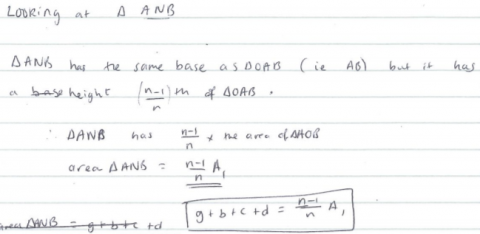 LOOKING at Δ ANB
ΔANB has the same base as ΔOAB (ie AB) but it has
a base height (n-1/n)th of ΔOAB.
∴ ΔANB has n-1/n × the area of ΔAOB
area ΔANB = n-1/n A₁
area ΔANB = g+b+c+d
g+b+c+d = n-1/n A₁